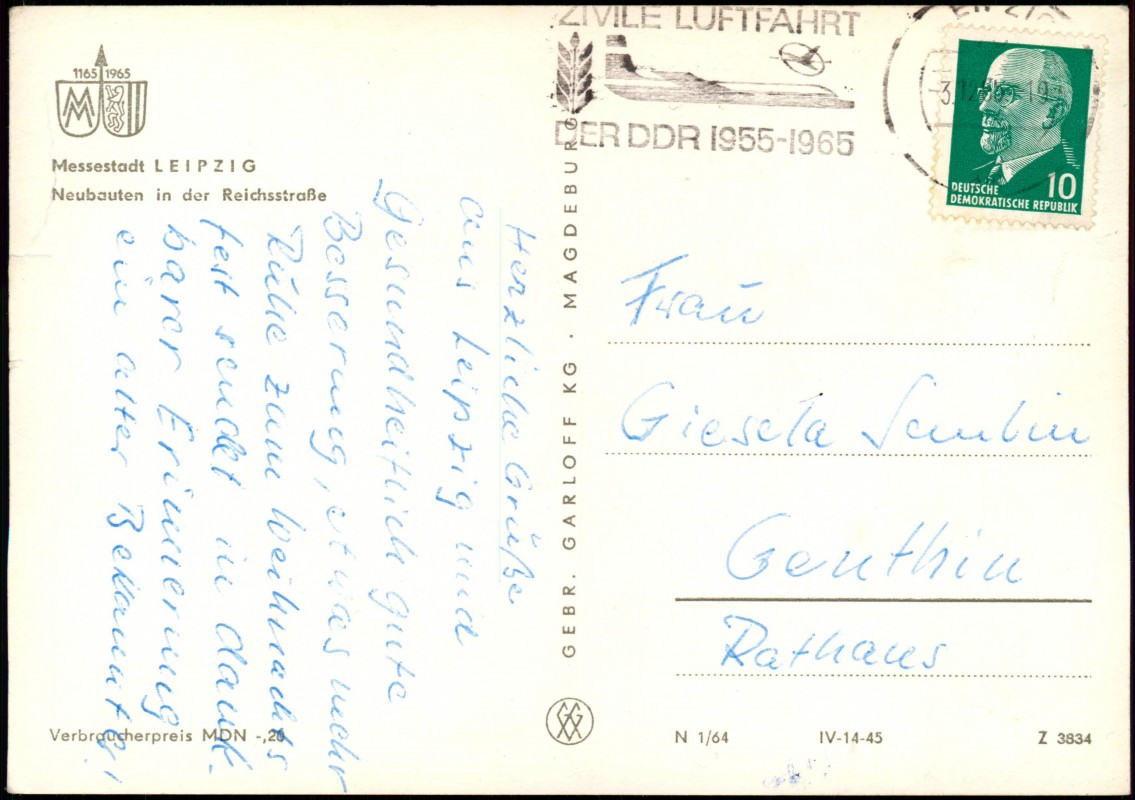 1165 1965
M
Messestadt LEIPZIG
Neubauten in der Reichsstraße
ZIVILE LUFTFAHRT
DER DDR 1955-1965
LEIPZIG
3.12.65-19
DEUTSCHE
DEMOKRATISCHE REPUBLIK
10
Herzliche Grüße
aus Leipzig und
Gesundheitlich gute
Besserung, etwas mehr
Ruhe zum Weihnachts
fest sendet in dank-
barer Erinnerung
ein alter Bekannter!
GEBR. GARLOFF KG · MAGDEBURG
Frau
Giesela
Genthin
Rathaus
Verbraucherpreis MDN -,20
N 1/64
IV-14-45
Z 3834